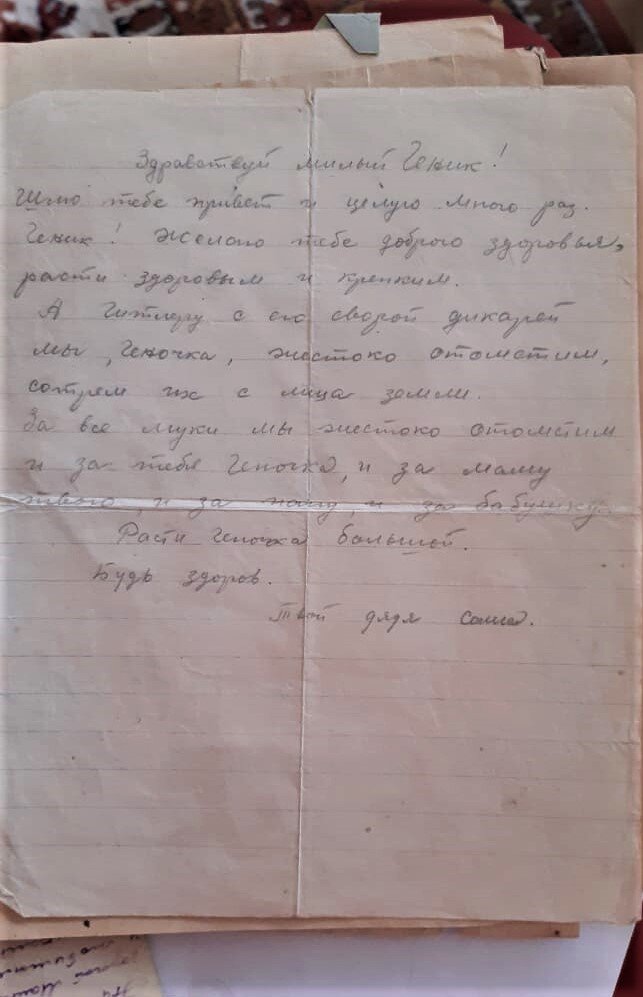 Здравствуй милый Геник!
Шлю тебе привет и целую много раз.
Геник! Желаю тебе доброго здоровья,
расти здоровым и крепким.
А Гитлеру с его сворой дикарей
мы, Геночка, жестоко отомстим,
сотрем их с лица земли.
За все муки мы жестоко отомстим
и за тебя Геночка, и за маму
твою, и за папу, и за бабушку.
Расти Геночка большой.
Будь здоров.
Твой дядя Саша.